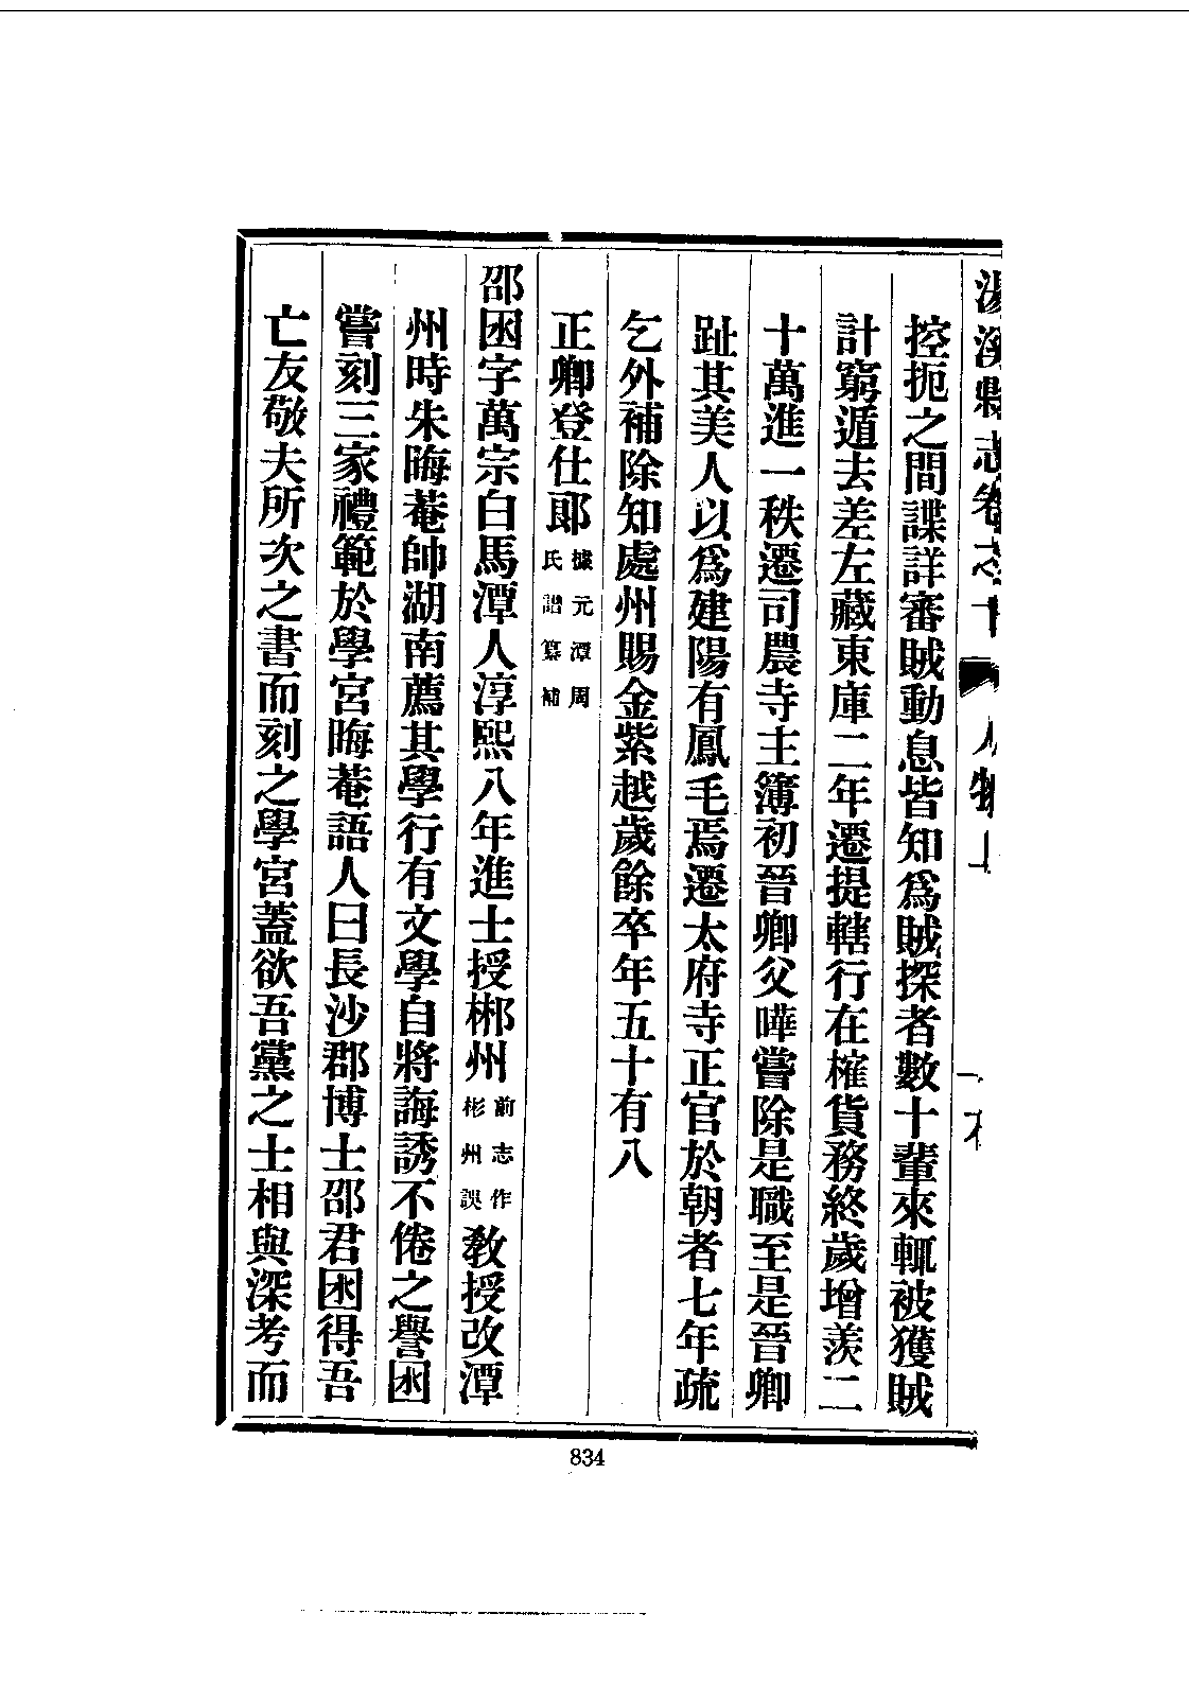 湯溪縣志卷之十 人物上
控扼之間諜詳審賊動息皆知爲賊探者數十輩來輒被獲賊
計窮遁去差左藏東庫二年遷提轄行在榷貨務終歲增羨二
十萬進一秩遷司農寺主簿初晉卿父曄嘗除是職至是晉卿
趾其美人以爲建陽有鳳毛焉遷太府寺正官於朝者七年疏
乞外補除知處州賜金紫越歲餘卒年五十有八
正卿登仕郞據元潭周氏譜纂補
邵困字萬宗白馬潭人淳熙八年進士授郴州前志作彬州誤敎授改潭
州時朱晦菴帥湖南薦其學行有文學自將誨誘不倦之譽困
嘗刻三家禮範於學宮晦菴語人曰長沙郡博士邵君困得吾
亡友敬夫所次之書而刻之學宮蓋欲吾黨之士相與深考而
834